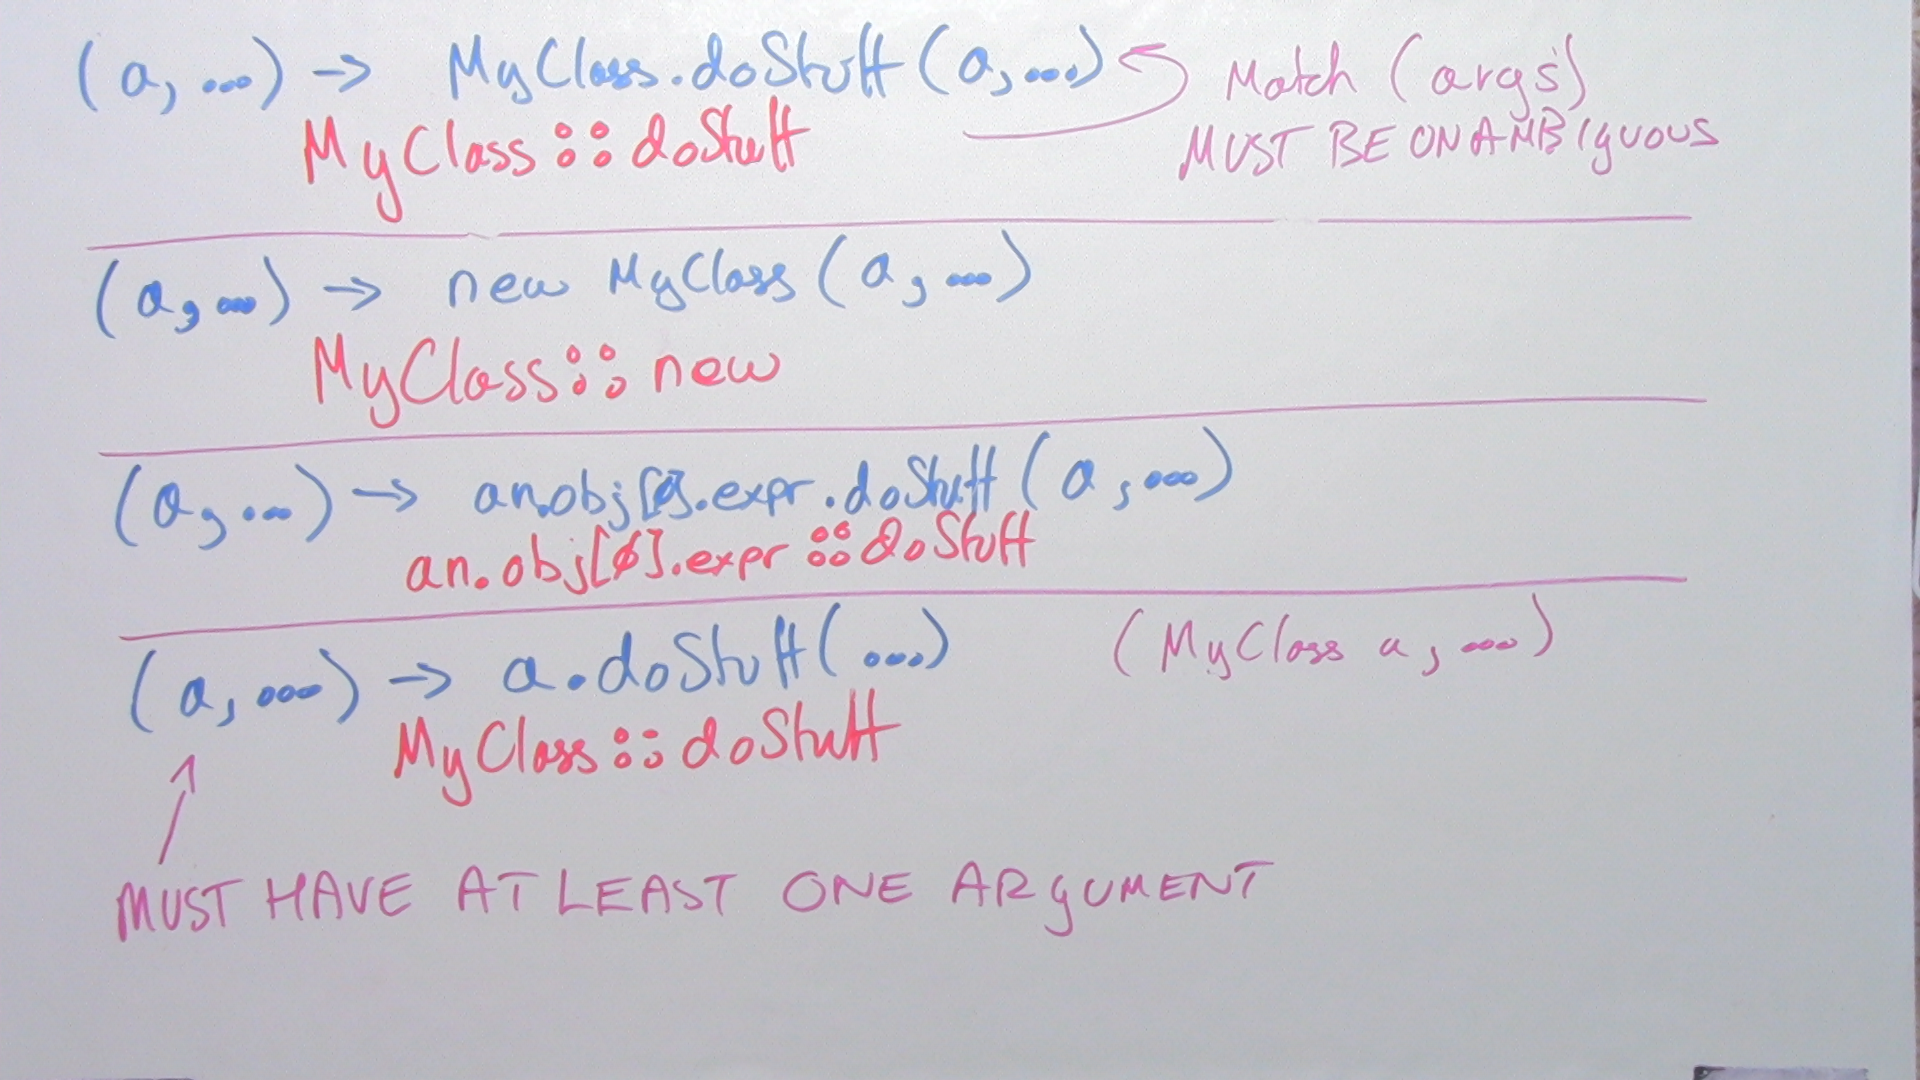 (a, ...) → MyClass.doStuff(a, ...) Match (args)
MyClass::doStuff MUST BE ONAMBIGUOUS
(a, ...) → new MyClass(a, ...)
MyClass::new
(a, ...) → an.obj[0].expr.doStuff(a, ...)
an.obj[0].expr::doStuff
(a, ...) → a.doStuff(...) (MyClass a, ...)
MyClass::doStuff
MUST HAVE AT LEAST ONE ARGUMENT